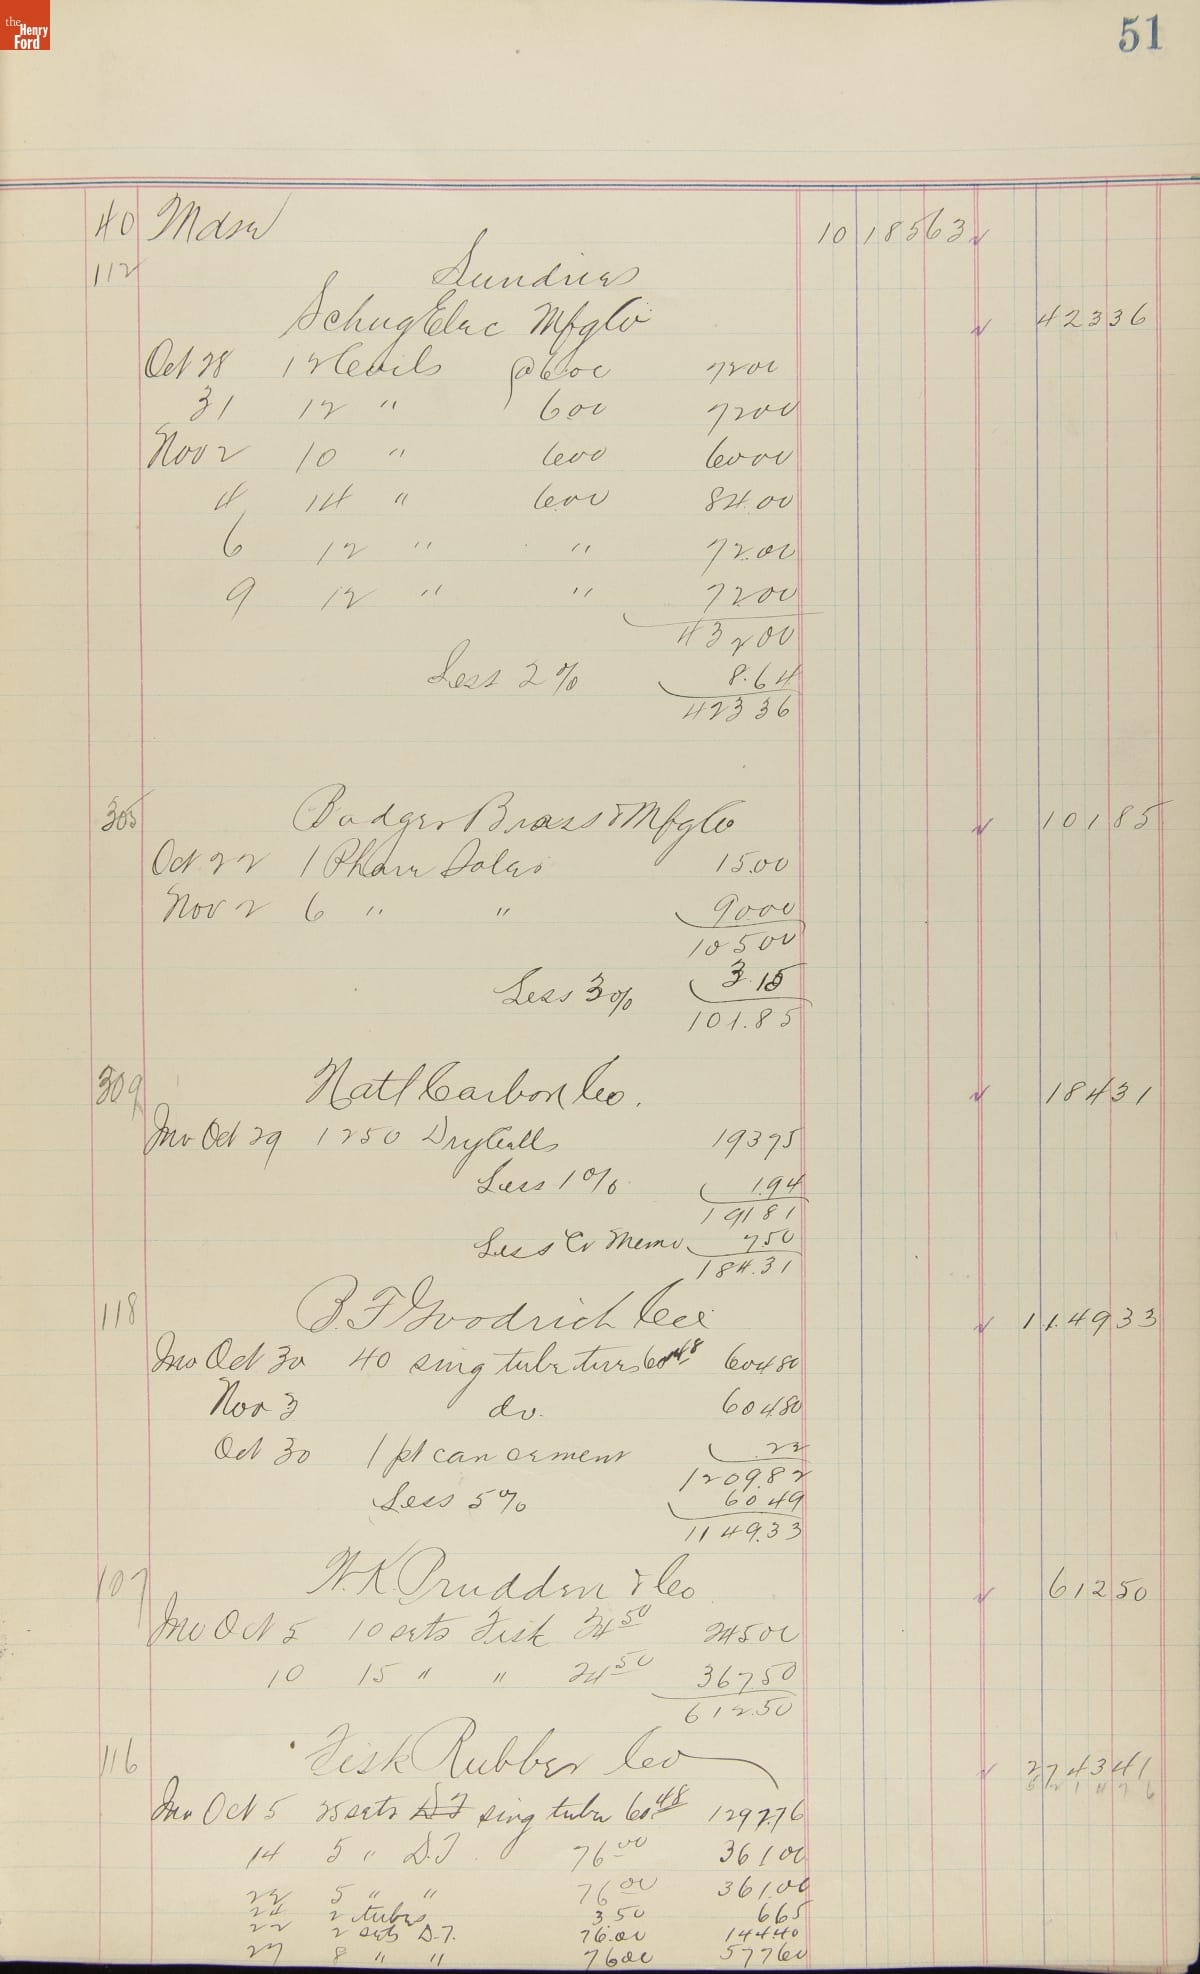 the Henry Ford
51
40 Mdse 10 185 63
112 Sundries
Schug Elec Mfg Co 423 36
Oct 28 12 Coils @ 6 00 72 00
31 12 " 6 00 72 00
Nov 2 10 " 6 00 60 00
4 14 " 6 00 84.00
6 12 " " 72.00
9 12 " " 72 00
432 00
Less 2% 8.64
423 36
305 Badger Brass & Mfg Co 101 85
Oct 22 1 Phare Solar 15.00
Nov 2 6 " " 90.00
105 00
Less 3% 3.15
101.85
309 Natl Carbon Co. 184 31
Inv Oct 29 1250 Dry Cells 193 75
Less 1% 1.94
191 81
Less Cr Memo 7 50
184.31
118 B. F Goodrich Co 1 149 33
Inv Oct 30 40 sing tube tires 60 48 604 80
Nov 3 do. 604 80
Oct 30 1 pt can cement .22
1209.82
Less 5% 60 49
1149.33
107 W. K. Prudden & Co 612 50
Inv Oct 5 10 sets Fisk 24 50 245 00
10 15 " " 24 50 367 50
612.50
116 Fisk Rubber Co 2 743 41
Inv Oct 5 25 sets D T sing tube 60.48 1297.76
14 5 " D.T. 76 00 361 00
22 5 " " 76 00 361.00
24 2 tubes 3.50 6 65
22 2 sets D.T. 76.00 144 40
27 8 " " 76 00 577 60